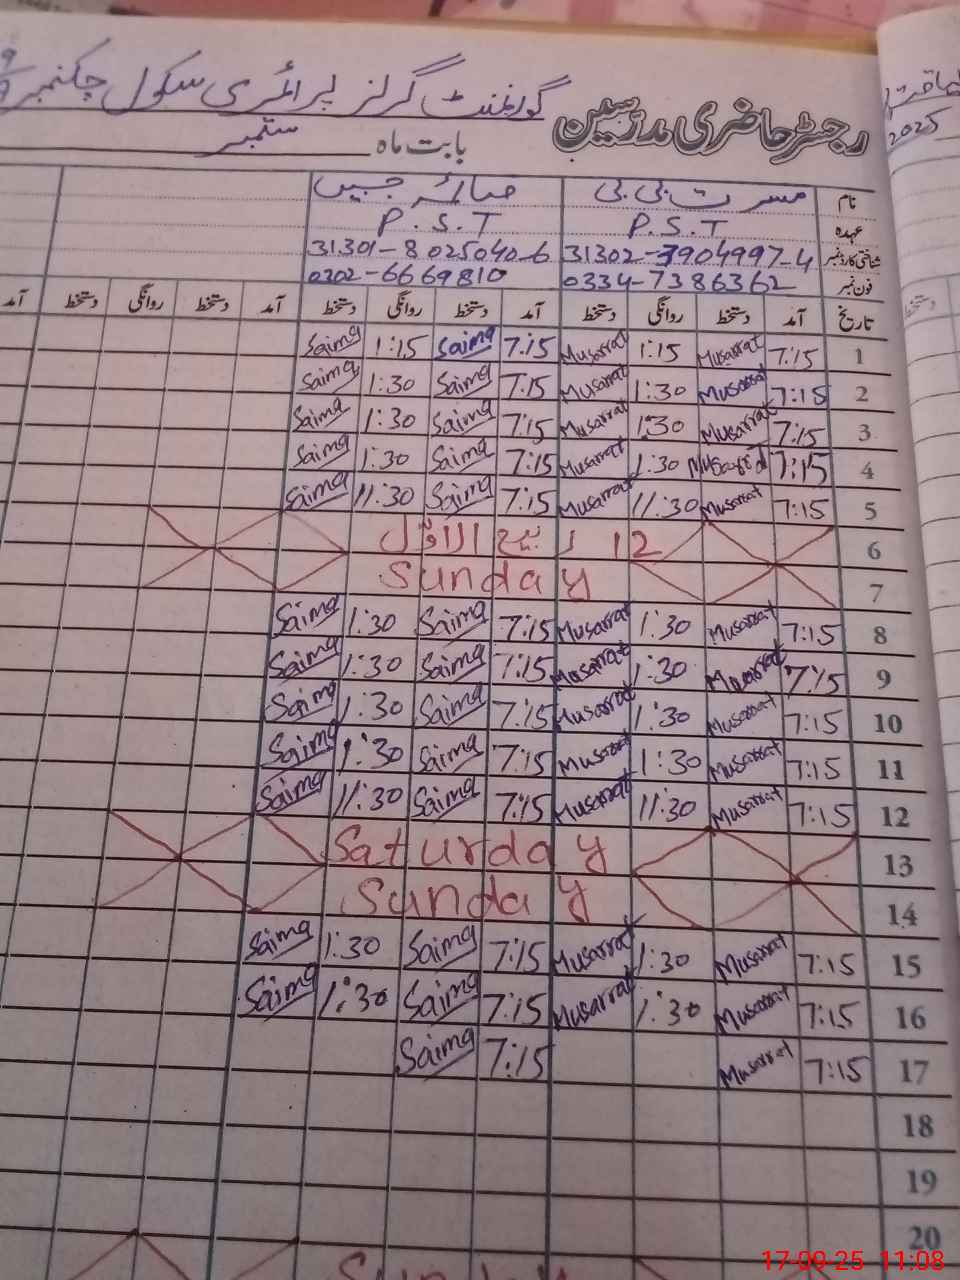 گورنمنٹ گرلز پرائمری سکول چکنمبر 9
رجسٹر حاضری مدرسین
2025
بابت ماہ ستمبر
نام مسرت بی بی صائمہ جبیں
عہدہ P.S.T P.S.T
شناختی کارڈ نمبر 31302-3904997-4 31301-8025040-6
فون نمبر 0334-7386362 0302-6669810
تاریخ آمد دستخط روانگی دستخط آمد دستخط روانگی دستخط آمد دستخط روانگی دستخط آمد
1 7:15 Musarrat 1:15 Musarrat 7:15 Saima 1:15 Saima
2 7:15 Musarrat 1:30 Musarrat 7:15 Saima 1:30 Saima
3 7:15 Musarrat 1:30 Musarrat 7:15 Saima 1:30 Saima
4 7:15 1:30 Musarrat 7:15 Saima 1:30 Saima
5 7:15 Musarrat 11:30 Musarrat 7:15 Saima 11:30 Saima
6 12 ربیع الاوّل
7 Sunday
8 7:15 Musarrat 1:30 Musarrat 7:15 Saima 1:30 Saima
9 7:15 Musarrat 1:30 Musarrat 7:15 Saima 1:30 Saima
10 7:15 Musarrat 1:30 Musarrat 7:15 Saima 1:30 Saima
11 7:15 Musarrat 1:30 Musarrat 7:15 Saima 1:30 Saima
12 7:15 Musarrat 11:30 Musarrat 7:15 Saima 11:30 Saima
13 Saturday
14 Sunday
15 7:15 Musarrat 1:30 Musarrat 7:15 Saima 1:30 Saima
16 7:15 Musarrat 1:30 Musarrat 7:15 Saima 1:30 Saima
17 7:15 Musarrat 7:15 Saima
18
19
20
17-09-25 11:08